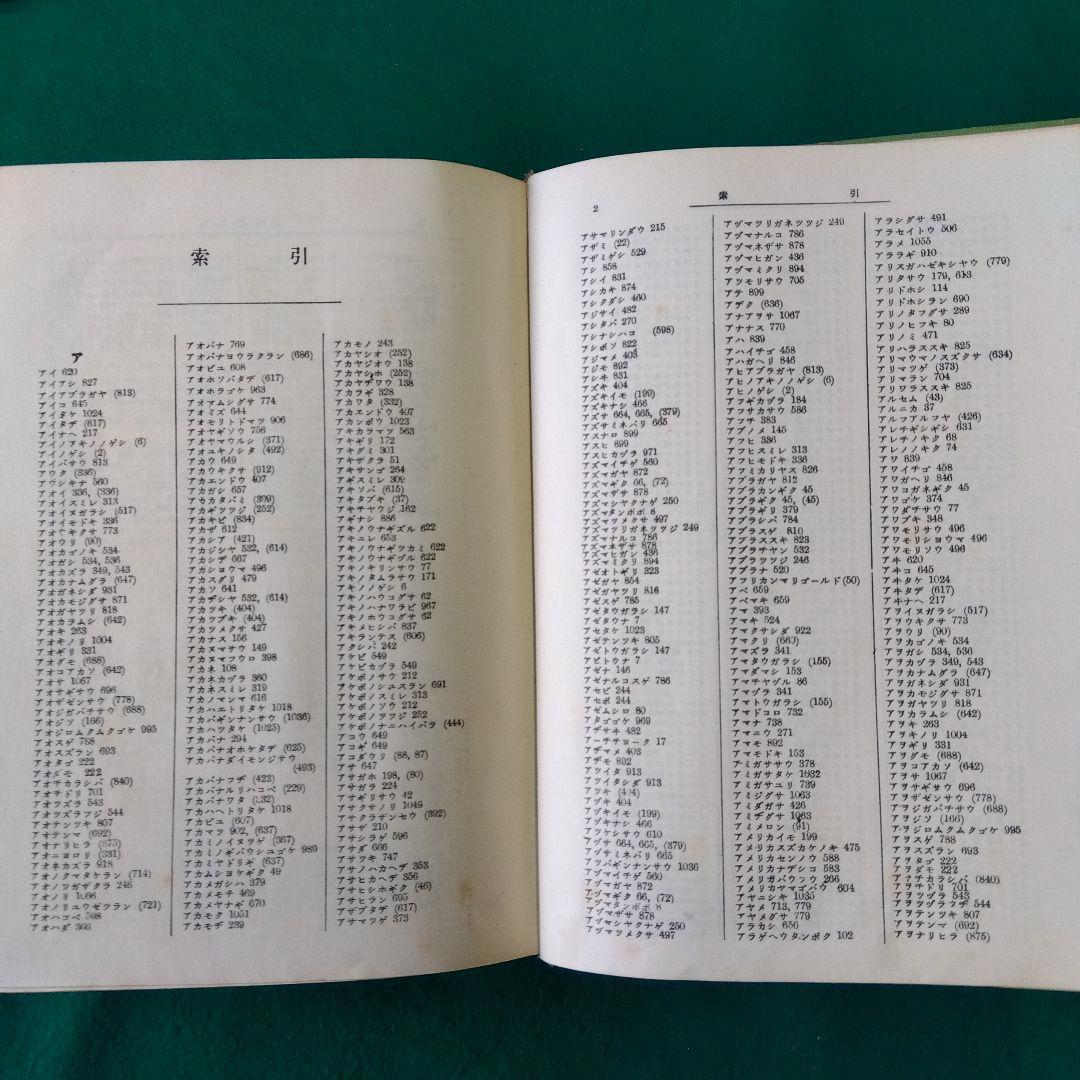 索引
ア
アイ 620
アイアシ 827
アイアブラガヤ (813)
アイコ 645
アイタケ 1024
アイタデ (617)
アイナヘ 217
アイノアキノノゲシ (6)
アイノゲシ (2)
アイバサウ 813
アウク (336)
アウシキナ 560
アオイ 336, (336)
アオイスミレ 313
アオイヌガラシ (517)
アオイモドキ 336
アオウキクサ 773
アオウリ (90)
アオカゴノキ 534
アオガシ 534, 536
アオカズラ 349, 543
アオカナムグラ (647)
アオガネシダ 931
アオカモジグサ 871
アオガヤツリ 818
アオカラムシ (642)
アオキ 263
アオキノリ 1004
アオギリ 331
アオグモ (688)
アオコアカソ (642)
アオサ 1067
アオサギサウ 696
アオザゼンサウ (778)
アオジガバチサウ (688)
アオジソ (166)
アオジロムクムクゴケ 995
アオスゲ 788
アオスズラン 693
アオタゴ 222
アオダモ 222
アオチカラシバ (840)
アオチドリ 701
アオツヅラ 543
アオツヅラフジ 544
アオテンツキ 807
アオテンマ (692)
アオナリヒラ (875)
アオニヨロリ (331)
アオネカズラ 918
アオノクマタケラン (714)
アオノツガザクラ 248
アオノリ 1066
アオノリユウゼツラン (721)
アオハコベ 598
アオハダ 366
アオバナ 769
アオバナヨウラクラン (686)
アオビユ 608
アオホソバタデ (617)
アオホラゴケ 963
アオマムシグサ 774
アオミズ 644
アオモリトドマツ 906
アオヤギソウ 756
アオヤマウルシ (371)
アオユキノシタ (492)
アカウ 649
アカウキクサ (912)
アカエンドウ 407
アカガシ 657
アカカタバミ (399)
アカギツツジ (252)
アカキビ (834)
アカザ 612
アカシア (421)
アカジシヤ 532, (614)
アカシデ 667
アカショウマ 496
アカスグリ 479
アカソ 641
アカヂシヤ 532, (614)
アカツキ (404)
アカツブキ (404)
アカツメクサ 427
アカナス 156
アカヌマサウ 149
アカヌマフウロ 398
アカネ 108
アカネカヅラ 360
アカネスミレ 319
アカノマンマ 616
アカハエトリタケ 1018
アカバギンナンサウ (1036)
アカハツタケ (1025)
アカバナ 294
アカバナオホケタデ (625)
アカバナダイモンジサウ (493)
アカバナフヂ (423)
アカバナルリハコベ (229)
アカバナワタ (332)
アカハヘトリタケ 1018
アカビユ (607)
アカマツ 902, (637)
アカミノイヌツゲ (367)
アカミノギバウシユゴケ 989
アカミヤドリギ (637)
アカムシヨケギク 49
アカメガシハ 379
アカメモチ 469
アカメヤナギ 670
アカモク 1051
アカモヂ 239
アカモノ 243
アカヤシオ (252)
アカヤジオウ 138
アカヤシホ (252)
アカヤヂワウ 138
アカラギ 328
アカワタ (332)
アカエンドウ 407
アカンボウ 1023
アキカラマツ 563
アキギリ 172
アキグミ 301
アキザクラ 51
アキサンゴ 264
アギスミレ 309
アキソバ (615)
アキタブキ (37)
アキチヤウジ 162
アギナシ 886
アキノウナギズル 622
アキニレ 653
アキノウナギツカミ 622
アキノウナギヅル 622
アキノキリンサウ 77
アキノタムラサウ 171
アキノノゲシ 6
アキノハウコグサ 62
アキノハナワラビ 967
アキノホウコグサ 62
アキノメヒシバ 837
アキランテス (606)
アクシバ 242
アケビ 549
アケビカヅラ 549
アケボノサウ 212
アケボノシユスラン 691
アケボノスミレ 313
アケボノソウ 212
アケボノツツジ 252
アケボノナニハイバラ (444)
アコウ 649
アコギ 649
アコダウリ (88, 87)
アサ 647
アサガホ 198, (80)
アサガラ 224
アサギリサウ 42
アサクサノリ 1049
アサクラザンセウ (392)
アサザ 210
アサシラゲ 596
アサダ 666
アサツキ 747
アサノハカヘデ 353
アサヒカヘデ 356
アサヒシホギク (46)
アサヒラン 695
アザブタデ (617)
アサマツゲ 373
2 索引
アサマリンダウ 215
アザミ (22)
アザミゲシ 529
アシ 858
アシイ 831
アシカキ 874
アシクダシ 460
アジサイ 482
アシタバ 270
アシナシハコ (598)
アシボソ 822
アジマメ 403
アジモ 892
アシネ 831
アズキ 404
アズキイモ (199)
アズキナシ 466
アズサ 664, 665, (379)
アズサミネバリ 665
アスナロ 899
アスヒ 899
アスヒカヅラ 971
アズマイチゲ 560
アズマガヤ 872
アズマギク 66, (72)
アズマザサ 878
アズマシヤクナゲ 250
アズマタンポポ 8
アズマツメクサ 497
アズマツリガネツツジ 249
アズマナルコ 786
アズマネザサ 878
アズマヒガン 436
アズマミクリ 894
アゼオトギリ 323
アゼガヤ 854
アゼガヤツリ 816
アゼスゲ 785
アゼタウガラシ 147
アゼタウナ 7
アゼタケ 1023
アゼテンツキ 805
アゼトウガラシ 147
アゼトウナ 7
アゼナ 146
アゼナルコスゲ 786
アセビ 244
アセボ 244
アゼムシロ 80
アタゴゴケ 969
アヂサヰ 482
アーチチョーク 17
アヂマメ 403
アヂモ 892
アツイタ 913
アツイタシダ 913
アツキ (404)
アヅキ 404
アヅキイモ (199)
アヅキナシ 466
アツケシサウ 610
アヅサ 664, 665, (379)
アヅサミネバリ 665
アツバギンナンサウ 1036
アヅマイチゲ 560
アヅマガヤ 872
アヅマギク 66, (72)
アヅマタンポポ 8
アヅマザサ 878
アヅマシヤクナゲ 250
アヅマツメクサ 497
アヅマツリガネツツジ 249
アヅマナルコ 786
アヅマネザサ 878
アヅマヒガン 436
アヅマミクリ 894
アツモリサウ 705
アテ 899
アデク (636)
アナアヲサ 1067
アナナス 770
アハ 839
アハイチゴ 458
アハガヘリ 846
アヒアブラガヤ (813)
アヒノアキノノゲシ (6)
アヒノゲシ (2)
アフギカヅラ 184
アフサカサウ 586
アフチ 383
アブノメ 145
アフヒ 336
アフヒスミレ 313
アフヒモドキ 336
アフミカリヤス 826
アブラガヤ 812
アブラカンギク 45
アブラギク 45, (45)
アブラギリ 379
アブラシバ 784
アブラスゲ 810
アブラススキ 823
アブラチヤン 532
アブラツツジ 246
アブラナ 520
アフリカンマリゴールド(50)
アベ 659
アベマキ 659
アマ 393
アマキ 524
アマクサシダ 922
アマクリ (660)
アマヅラ 341
アマタウガラシ (155)
アマダマシ 153
アマチヤヅル 86
アマヅラ 341
アマトウガラシ (155)
アマドコロ 732
アマナ 738
アマニウ 271
アマモ 892
アマモドキ 153
アミガササウ 378
アミガサタケ 1032
アミガサユリ 739
アミジグサ 1063
アミダガサ 426
アミヂグサ 1063
アミメロン (91)
アメリカイモ 199
アメリカスズカケノキ 475
アメリカセンノウ 588
アメリカナデシコ 583
アメリカバウフウ 266
アメリカヤマゴバウ 604
アヤニシキ 1035
アヤメ 713, 779
アヤメグサ 779
アラカシ 656
アラゲヘウタンボク 102
アラシグサ 491
アラセイトウ 506
アラメ 1055
アララギ 910
アリスガハゼキシヤウ (779)
アリタサウ 179, 613
アリドホシ 114
アリドホシラン 690
アリノタフグサ 289
アリノヒフキ 80
アリノミ 471
アリハラススキ 825
アリマウマノスズクサ (634)
アリマツゲ (373)
アリマラン 704
アリワラススキ 825
アルセム (43)
アルニカ 37
アルフアルフヤ (426)
アレチギシギシ 631
アレチノキク 68
アレノノキク 74
アワ 839
アワイチゴ 458
アワガヘリ 846
アワコガネギク 45
アワゴケ 374
アワダチサウ 77
アワブキ 348
アワモリサウ 496
アワモリショウマ 496
アワモリソウ 496
アヰ 620
アヰコ 645
アヰタケ 1024
アヰタデ (617)
アヰナヘ 217
アヲイヌガラシ (517)
アヲウキクサ 773
アヲウリ (90)
アヲカゴノキ 534
アヲガシ 534, 536
アヲカヅラ 349, 543
アヲカナムグラ (647)
アヲガネシダ 931
アヲカモジグサ 871
アヲガヤツリ 818
アヲカラムシ (642)
アヲキ 263
アヲキノリ 1004
アヲギリ 331
アヲグモ (688)
アヲコアカソ (642)
アヲサ 1067
アヲサギサウ 696
アヲザゼンサウ (778)
アヲジガバチサウ (688)
アヲジソ (166)
アヲジロムクムクゴケ 995
アヲスゲ 788
アヲスズラン 693
アヲタゴ 222
アヲダモ 222
アヲチカラシバ (840)
アヲチドリ 701
アヲツヅラ 543
アヲツヅラフヂ 544
アヲテンツキ 807
アヲテンマ (692)
アヲナリヒラ (875)